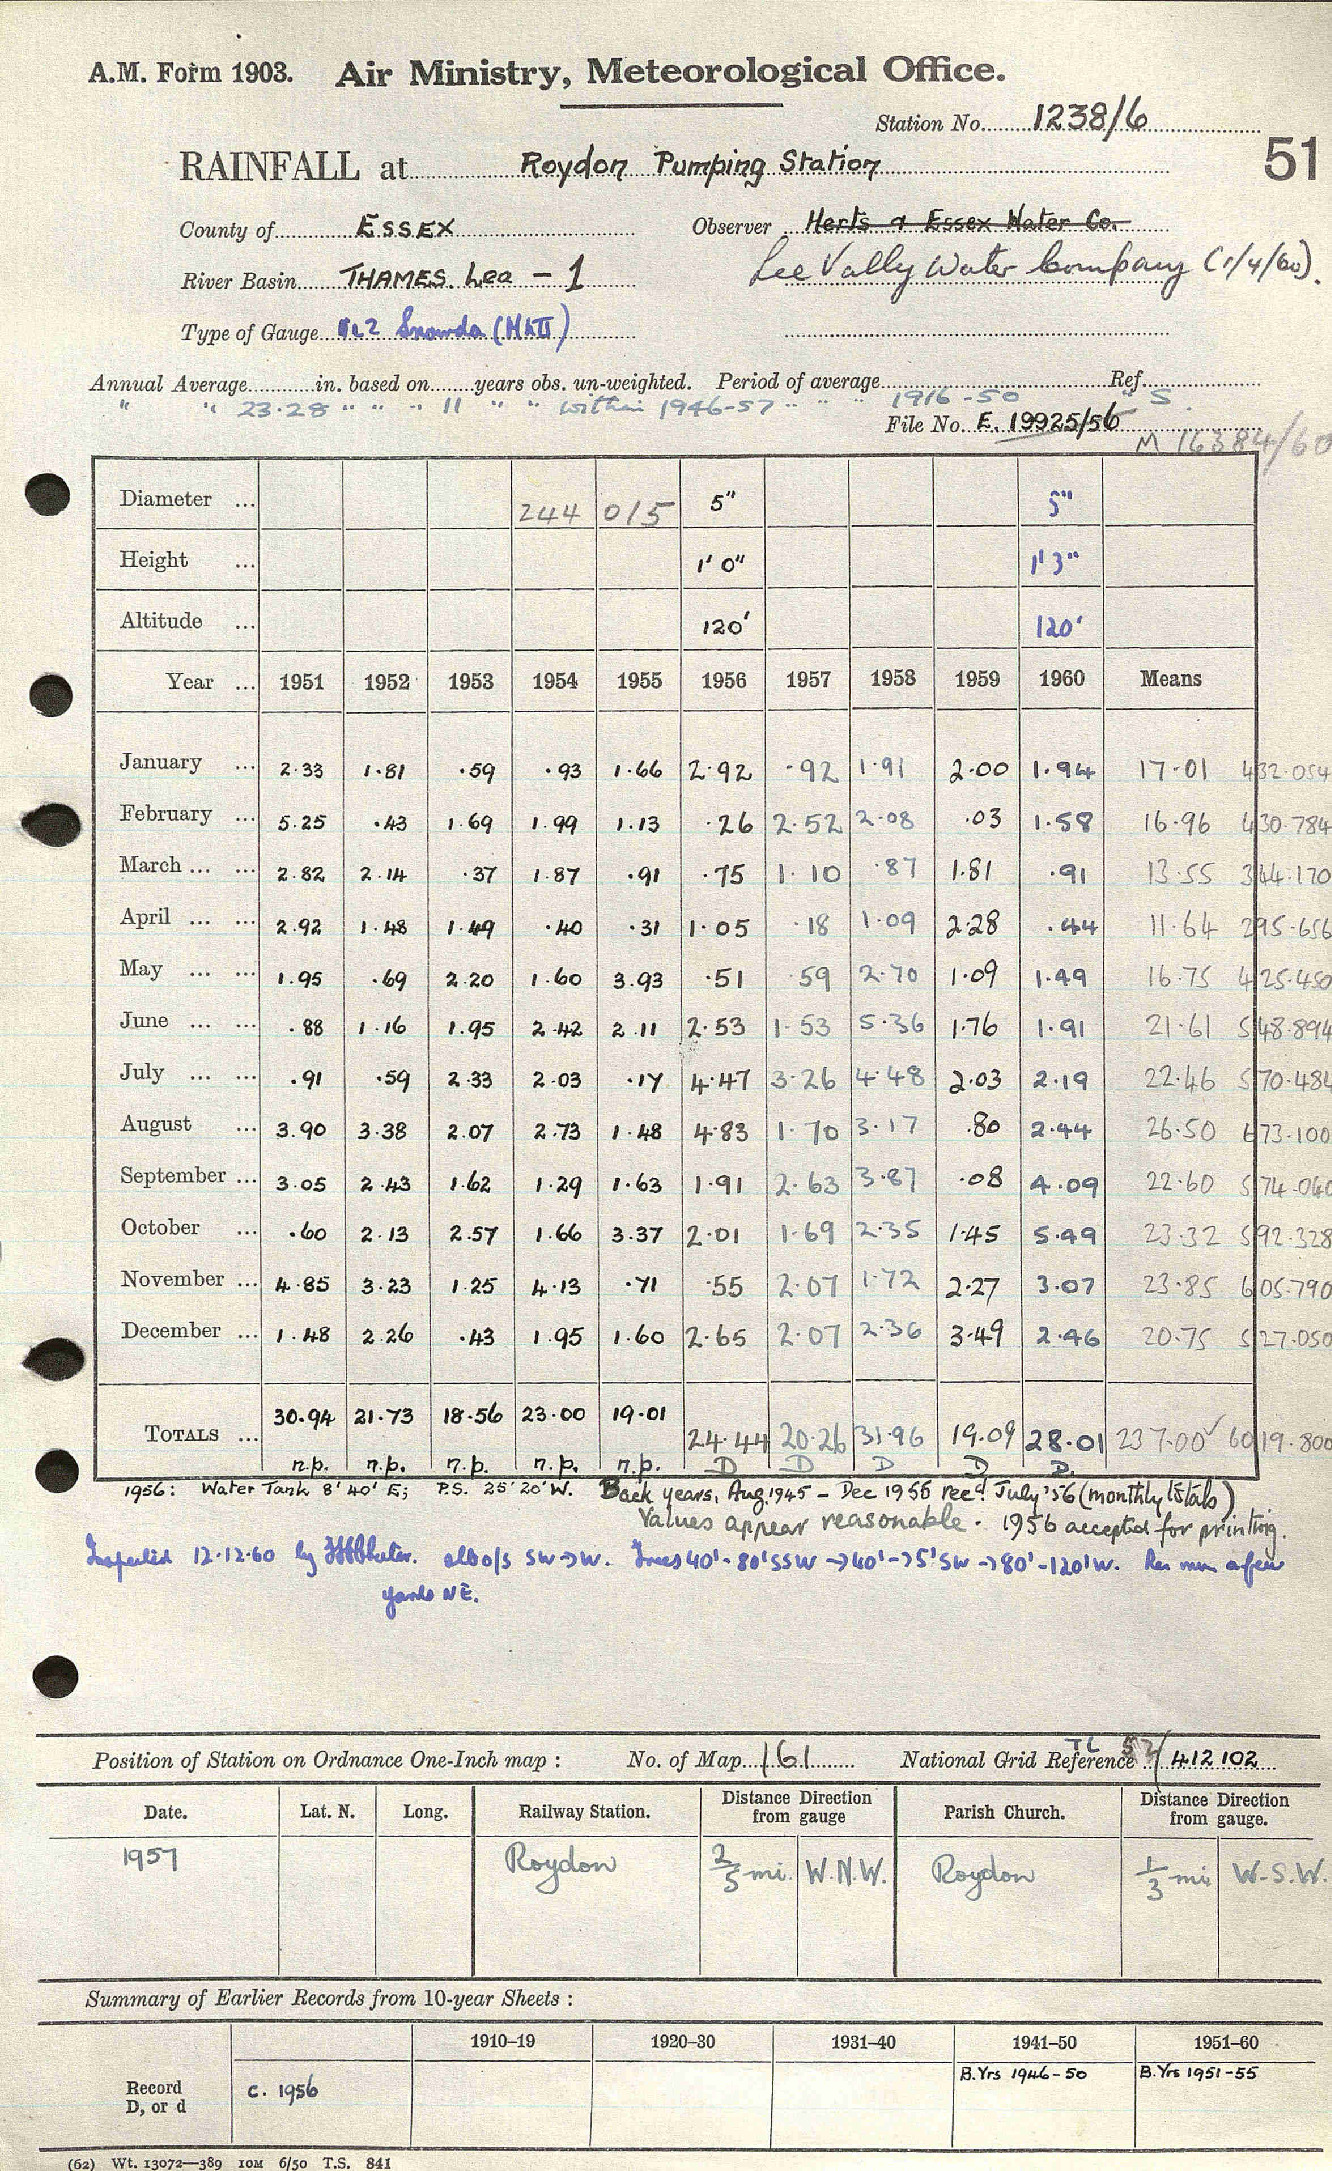 A.M. Form 1903. Air Ministry, Meteorological Office.
Station No. 1238/6
51
RAINFALL at Roydon Pumping Station
County of ESSEX Observer Herts & Essex Water Co.
River Basin THAMES. Lea - 1 Lee Vally Water Company (1/4/60).
Type of Gauge Snowdon (MkII)
Annual Average in. based on years obs. un-weighted. Period of average Ref.
" " 23.28 " " " 11 " " within 1946-57 " " " 1916-50 " S.
File No. E. 19925/56
M 16384/60
Diameter ... 244 015 5" 5"
Height ... 1' 0" 1' 3"
Altitude ... 120' 120'
Year ... 1951 1952 1953 1954 1955 1956 1957 1958 1959 1960 Means
January ... 2.33 1.81 .59 .93 1.66 2.92 .92 1.91 2.00 1.94 17.01 432.054
February ... 5.25 .43 1.69 1.99 1.13 .26 2.52 2.08 .03 1.58 16.96 430.784
March ... ... 2.82 2.14 .37 1.87 .91 .75 1.10 .87 1.81 .91 13.55 344.170
April ... ... 2.92 1.48 1.49 .40 .31 1.05 .18 1.09 2.28 .44 11.64 295.656
May ... ... 1.95 .69 2.20 1.60 3.93 .51 .59 2.70 1.09 1.49 16.75 425.450
June ... ... .88 1.16 1.95 2.42 2.11 2.53 1.53 5.36 1.76 1.91 21.61 548.894
July ... ... .91 .59 2.33 2.03 .17 4.47 3.26 4.48 2.03 2.19 22.46 570.484
August ... 3.90 3.38 2.07 2.73 1.48 4.83 1.70 3.17 .80 2.44 26.50 673.100
September ... 3.05 2.43 1.62 1.29 1.63 1.91 2.63 3.87 .08 4.09 22.60 574.040
October ... .60 2.13 2.57 1.66 3.37 2.01 1.69 2.35 1.45 5.49 23.32 592.328
November ... 4.85 3.23 1.25 4.13 .71 .55 2.07 1.72 2.27 3.07 23.85 605.790
December ... 1.48 2.26 .43 1.95 1.60 2.65 2.07 2.36 3.49 2.46 20.75 527.050
TOTALS ... 30.94 21.73 18.56 23.00 19.01 24.44 20.26 31.96 19.09 28.01 237.00 6019.800
n.p. n.p. n.p. n.p. n.p. D D D D D.
1956: Water Tank 8' 40' E; P.S. 25' 20' W. Back years, Aug. 1945 - Dec 1955 recd. July '56 (monthly totals)
Values appear reasonable. 1956 accepted for printing.
Inspected 12.12.60 by SW→W. Trees 40'-80' SSW →40'→75' SW →80'-120' W. a few
yards NE.
Position of Station on Ordnance One-Inch map : No. of Map 161 National Grid Reference TL 52/ 412 102
Date. Lat. N. Long. Railway Station. Distance from Direction gauge Parish Church. Distance from Direction gauge.
1957 Roydon 2/5 mi. W.N.W. Roydon 1/3 mi W.S.W.
Summary of Earlier Records from 10-year Sheets :
1910–19 1920–30 1931–40 1941–50 1951–60
Record D, or d c. 1956 B.Yrs 1946-50 B.Yrs 1951-55
(62) Wt. 13072—389 10M 6/50 T.S. 841